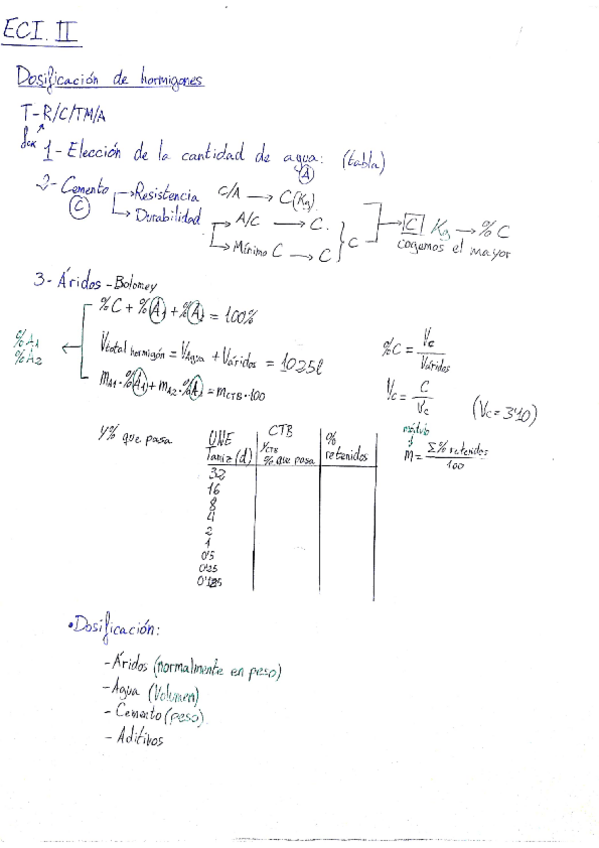 ECI. II
Dosificación de hormigones
T-R/C/TM/A
fck
1- Elección de la cantidad de agua: (tabla)
A
2- Cemento → Resistencia C/A → C(Kg)
C → Durabilidad → A/C → C.
→ Mínimo C → C } C
C Kg → %C
cogemos el mayor
3- Áridos - Bolomey
%C + %A1 + %A2 = 100%
%A1
%A2
Vtotal hormigón = VAgua + Váridos = 1025l
mA1·%A1 + mA2·%A2 = mCTB·100
%C = Vc / Váridos
Vc = C / Vc (Vc = 3'10)
módulo
M = Σ% retenidos / 100
Y% que pasa
UNE Tamiz (d) | CTB YCTB % que pasa | % retenidos
32
16
8
4
2
1
0'5
0'25
0'125
• Dosificación:
- Áridos (normalmente en peso)
- Agua (Volumen)
- Cemento (peso)
- Aditivos